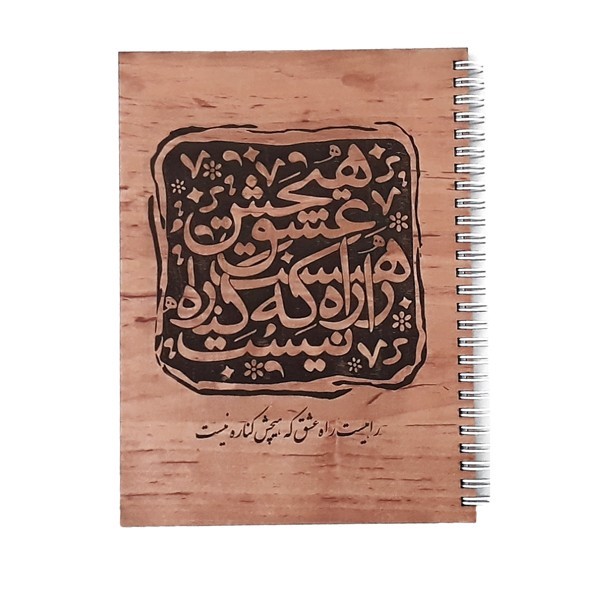 هیچش
عشق
راهیست راه که کناره
نیست
راهیست راه عشق که هیچش کناره نیست